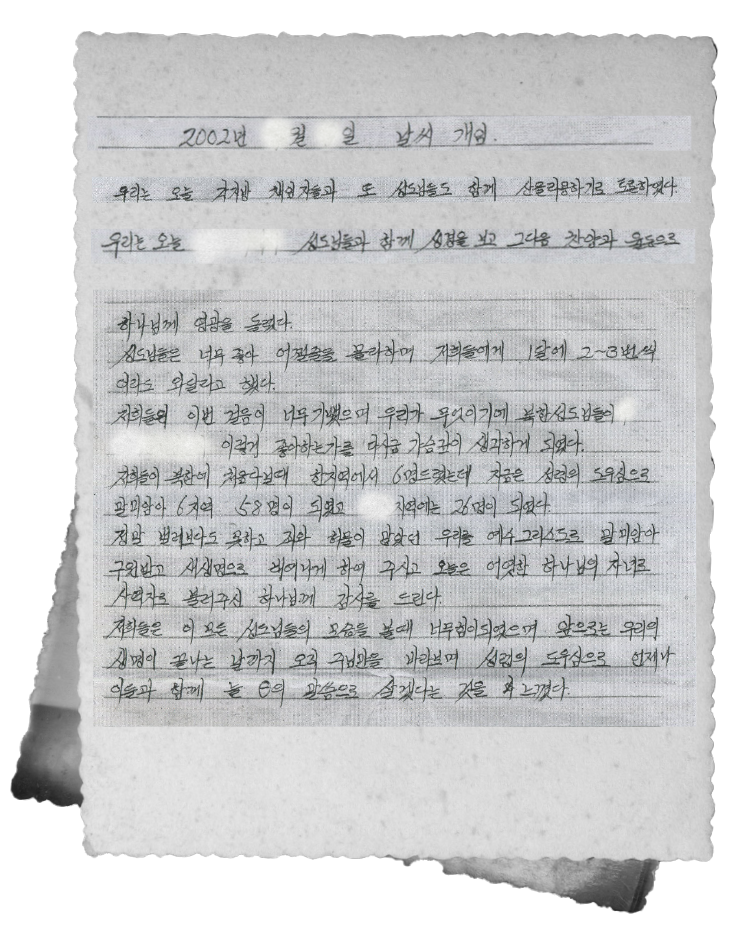 2002년 월 일 날씨 개임.
우리는 오늘 각지방 책임자들과 또 성도님들도 함께 산을리용하기로 토론하였다.
우리는 오늘 성도님들과 함께 성경을 보고 그다음 찬양과 율동으로
하나님께 영광을 돌렸다.
성도님들은 너무 좋아 어쩔줄을 몰라하며 저희들에게 1달에 2~3번씩
이라도 와달라고 했다.
저희들의 이번 걸음이 너무기뻤으며 우리가 무엇이기에 북한성도님들이
이렇게 좋아하는가를 다시금 가슴깊이 생각하게 되였다.
저희들이 북한에 처음나올때 한지역에서 6명드렸는데 지금은 성령의 도우심으로
말미암아 6지역 58명이 되였고 지역에는 26명이 되였다.
정말 벌러보다도 못하고 죄와 허물이 많았던 우리를 예수그리스도로 말미암아
구원받고 새생명으로 태여나게 하여 주시고 오늘은 어엿한 하나님의 자녀로
사역자로 불러주신 하나님께 감사를 드린다.
저희들은 이 모든 성도님들의 모습을 볼때 너무힘이되였으며 앞으로는 우리의
생명이 끝나는 날까지 오직 주님만을 바라보며 성령의 도우심으로 언제나
이들과 함께 늘 의 말씀으로 살겠다는 것을 느꼈다.